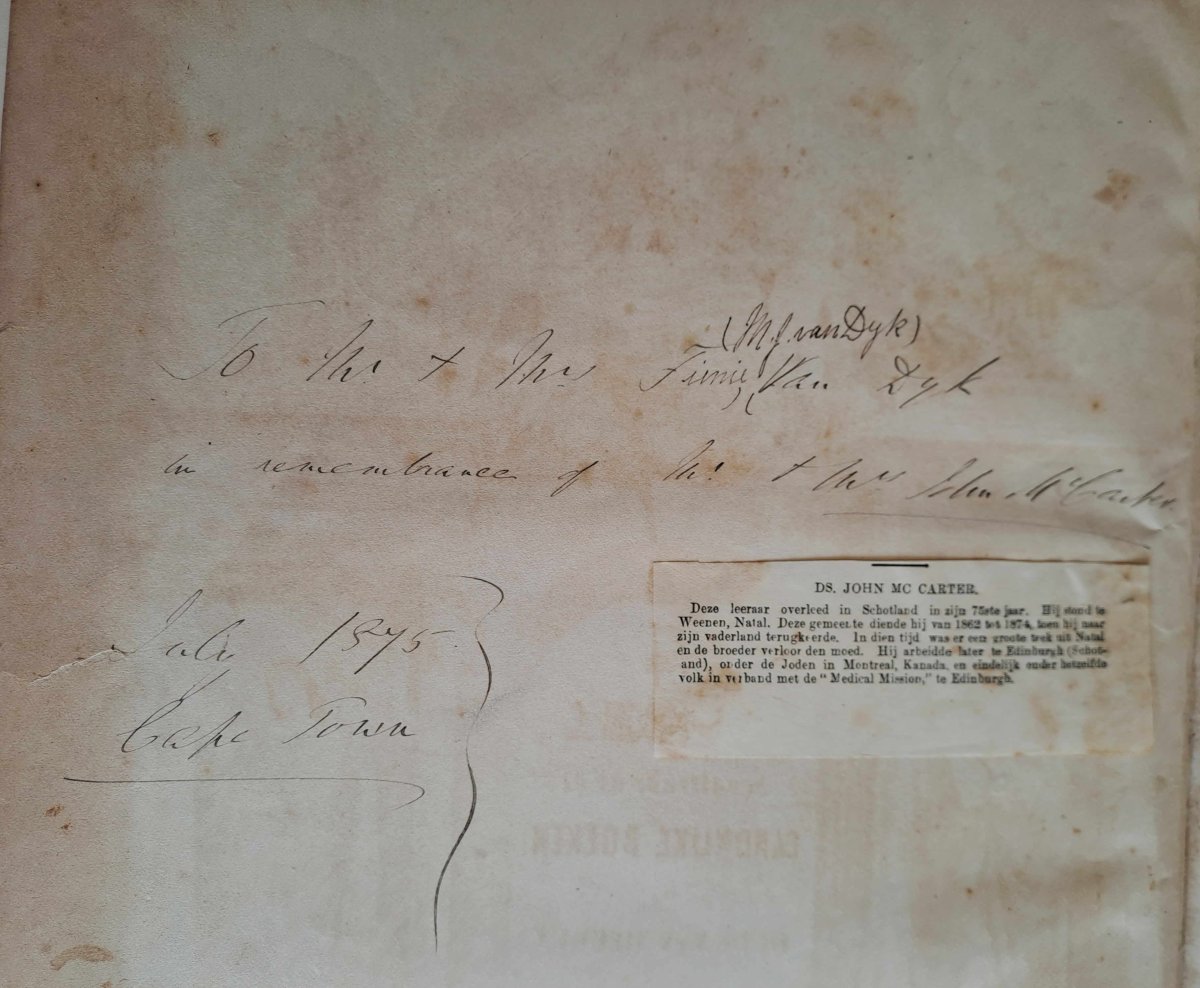 (M. J. van Dyk)
To Mr. & Mrs Fienie (Van Dyk
in remembrance of Mr. & Mrs John McCarter.
July 1875.
Cape Town
DS. JOHN MC CARTER.
Deze leeraar overleed in Schotland in zijn 75ste jaar. Hij stond te
Weenen, Natal. Deze gemeente diende hij van 1862 tot 1874, toen hij naar
zijn vaderland terugkeerde. In dien tijd was er een groote trek uit Natal
en de broeder verloor den moed. Hij arbeidde later te Edinburgh (Schot-
and), onder de Joden in Montreal, Kanada, en eindelijk onder hetzelfde
volk in verband met de "Medical Mission," te Edinburgh.